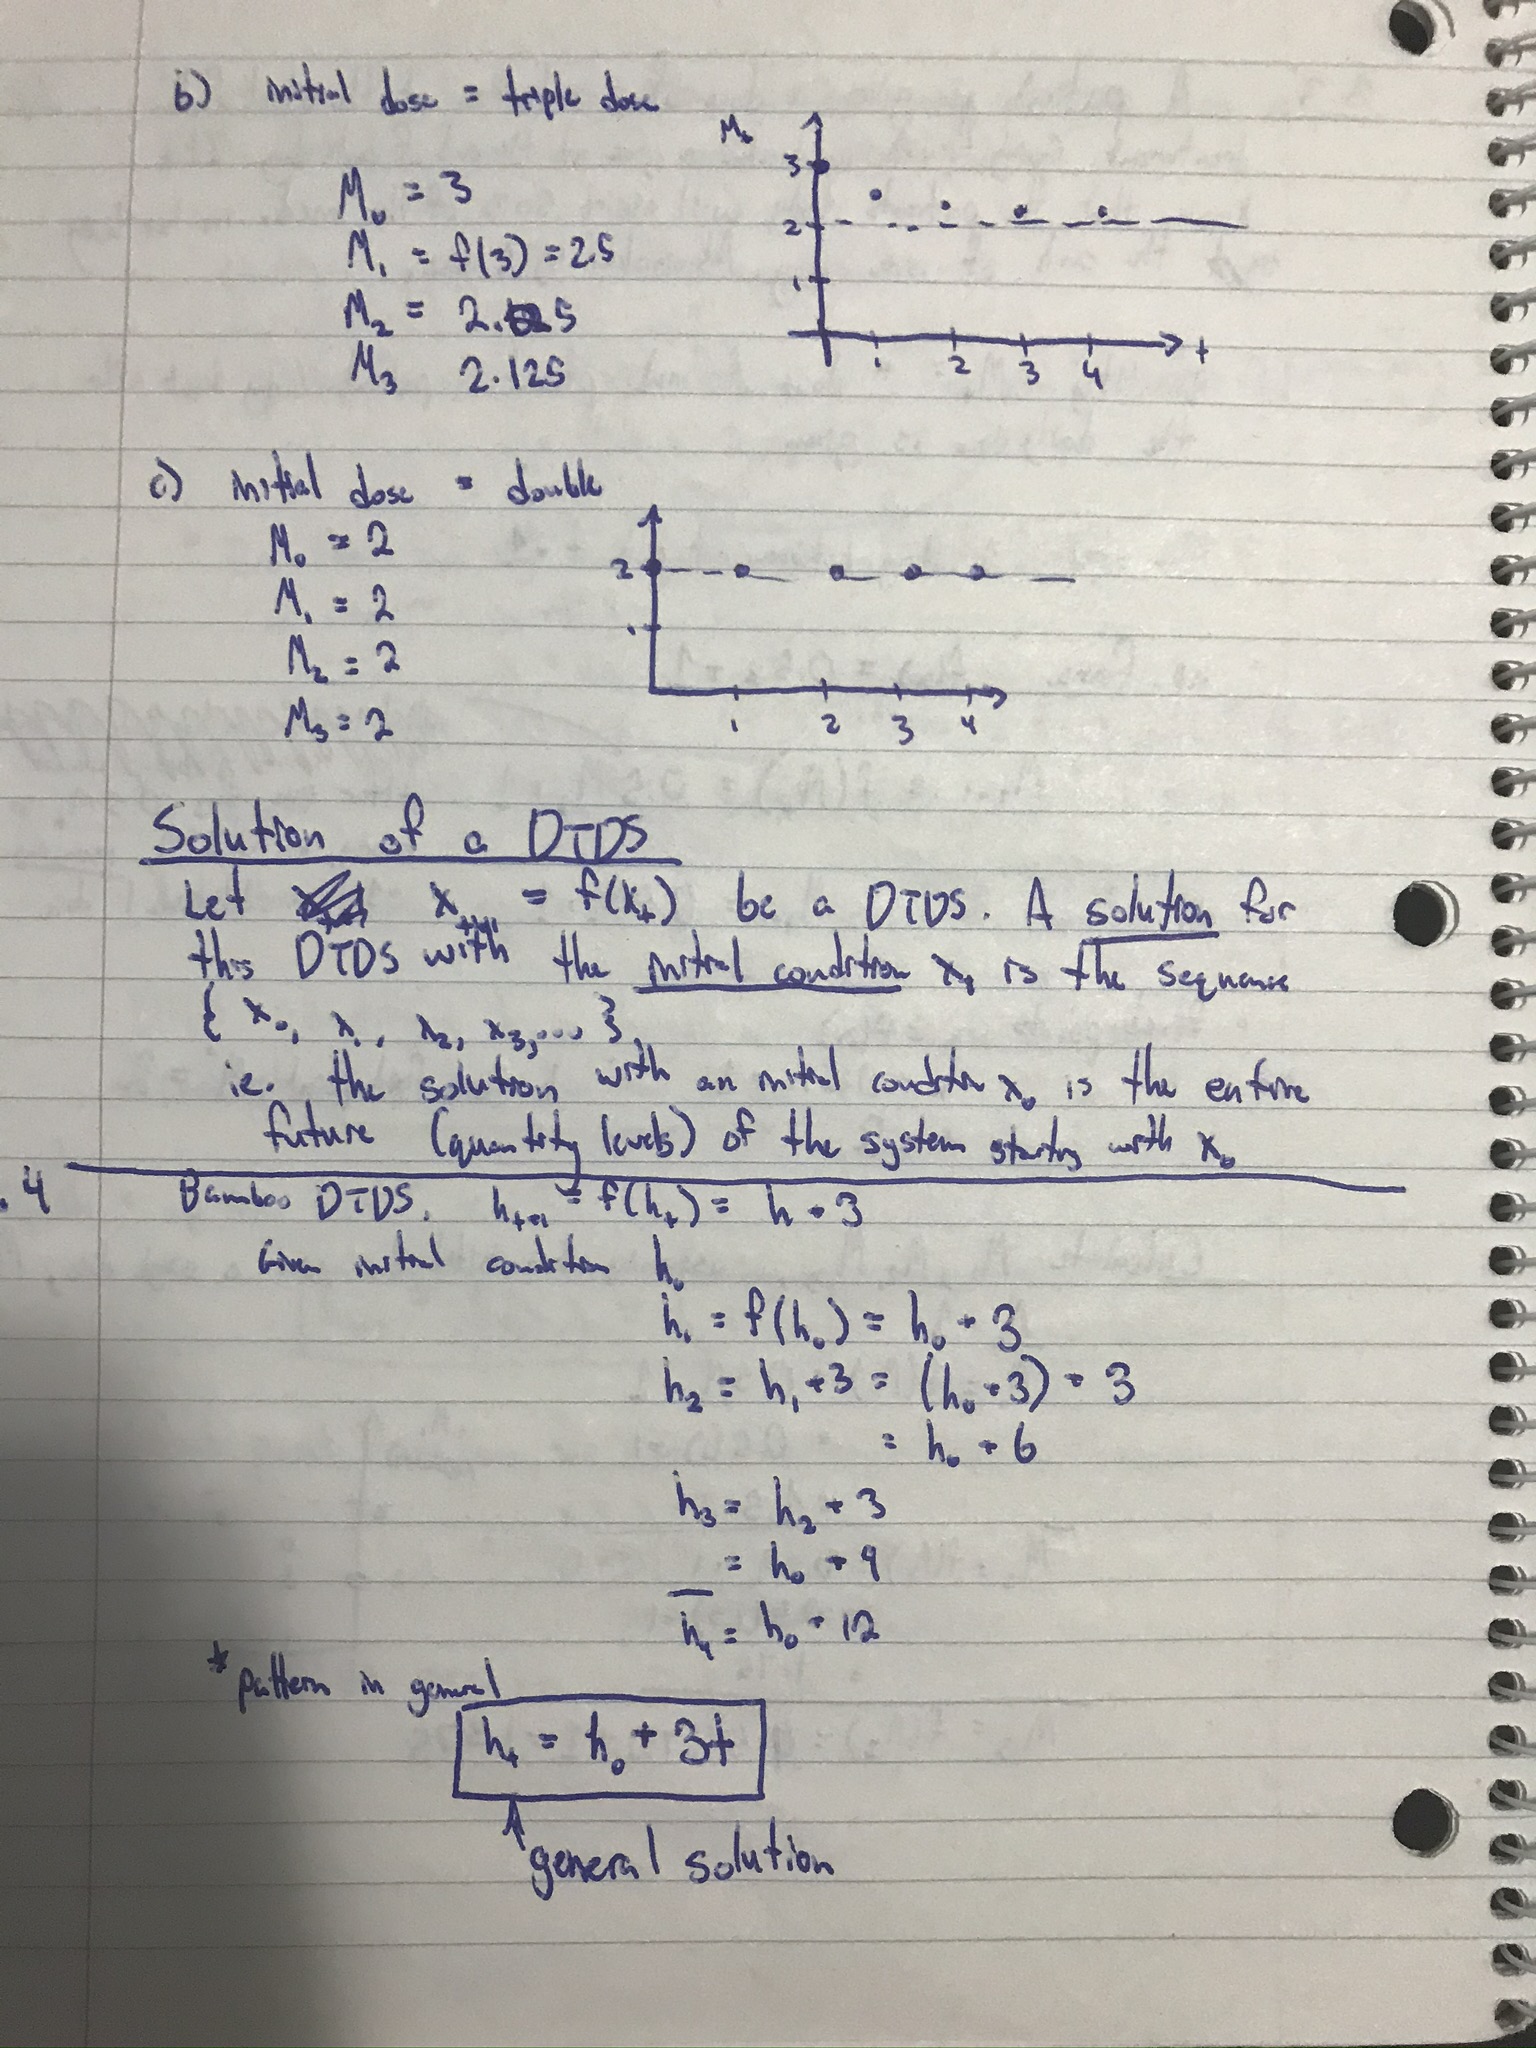 b) initial dose = triple dose
M₀ = 3
M₁ = f(3) = 2.5
M₂ = 2.25
M₃ 2.125
Mₜ
3
2
1
1 2 3 4 t
c) initial dose = double
M₀ = 2
M₁ = 2
M₂ = 2
M₃ = 2
2
1
1 2 3 4
Solution of a DTDS
Let xₜ₊₁ = f(xₜ) be a DTDS. A solution for
this DTDS with the initial condition x₀ is the sequence
{ x₀, x₁, x₂, x₃, ... }
ie. the solution with an initial condition x₀ is the entire
future (quantity levels) of the system starting with x₀
.4 Bamboo DTDS. hₜ₊₁ = f(hₜ) = h + 3
Given initial condition h₀
h₁ = f(h₀) = h₀ + 3
h₂ = h₁ + 3 = (h₀ + 3) + 3
= h₀ + 6
h₃ = h₂ + 3
= h₀ + 9
h₄ = h₀ + 12
* pattern in general
hₜ = h₀ + 3t
↑ general solution